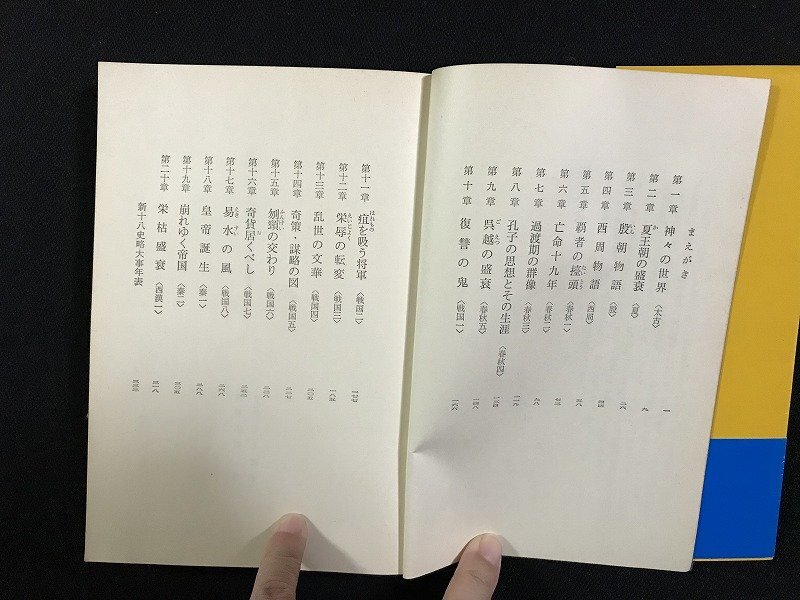 まえがき
第一章 神々の世界〈太古〉 一
第二章 夏王朝の盛衰〈夏〉 九
第三章 殷朝物語〈殷〉 二六
第四章 西周物語〈西周〉 四四
第五章 覇者の擡頭〈春秋一〉 五八
第六章 亡命十九年〈春秋二〉 七三
第七章 過渡期の群像〈春秋三〉 九八
第八章 孔子の思想とその生涯〈春秋四〉 一一九
第九章 呉越の盛衰〈春秋五〉
第十章 復讐の鬼〈戦国一〉 一六六
第十一章 疽を吸う将軍〈戦国二〉 一七七
第十二章 栄辱の転変〈戦国三〉 一八五
第十三章 乱世の文華〈戦国四〉 二〇五
第十四章 奇策・謀略の図〈戦国五〉 二二七
第十五章 刎頸の交わり〈戦国六〉 二三八
第十六章 奇貨居くべし〈戦国七〉 二五二
第十七章 易水の風〈戦国八〉 二六八
第十八章 皇帝誕生〈秦一〉 二八八
第十九章 崩れゆく帝国〈秦二〉 三〇五
第二十章 栄枯盛衰〈西漢一〉 三一八
新十八史略大事年表 三三三